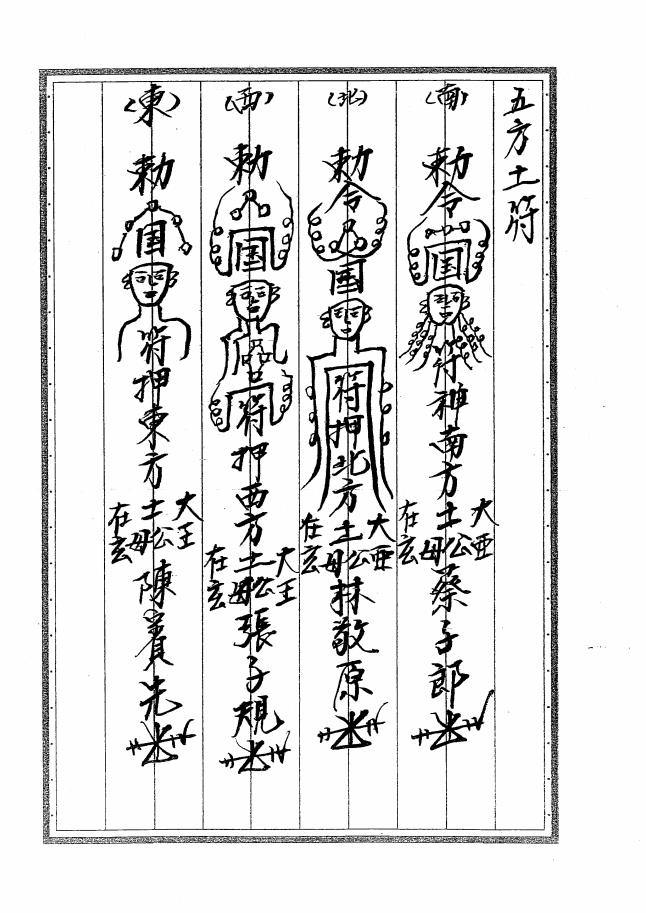 五方土符
(南)
勅令
国
符神南方土公
土母
大
在玄
蔡子郎
(北)
勅令
国
符押北方土公
土母
大
在玄
林敬原
(西)
勅
国
符押西方土公
土母
大王
在玄
張子規
(東)
勅
国
符押東方土公
土母
大王
在玄
陳賓先